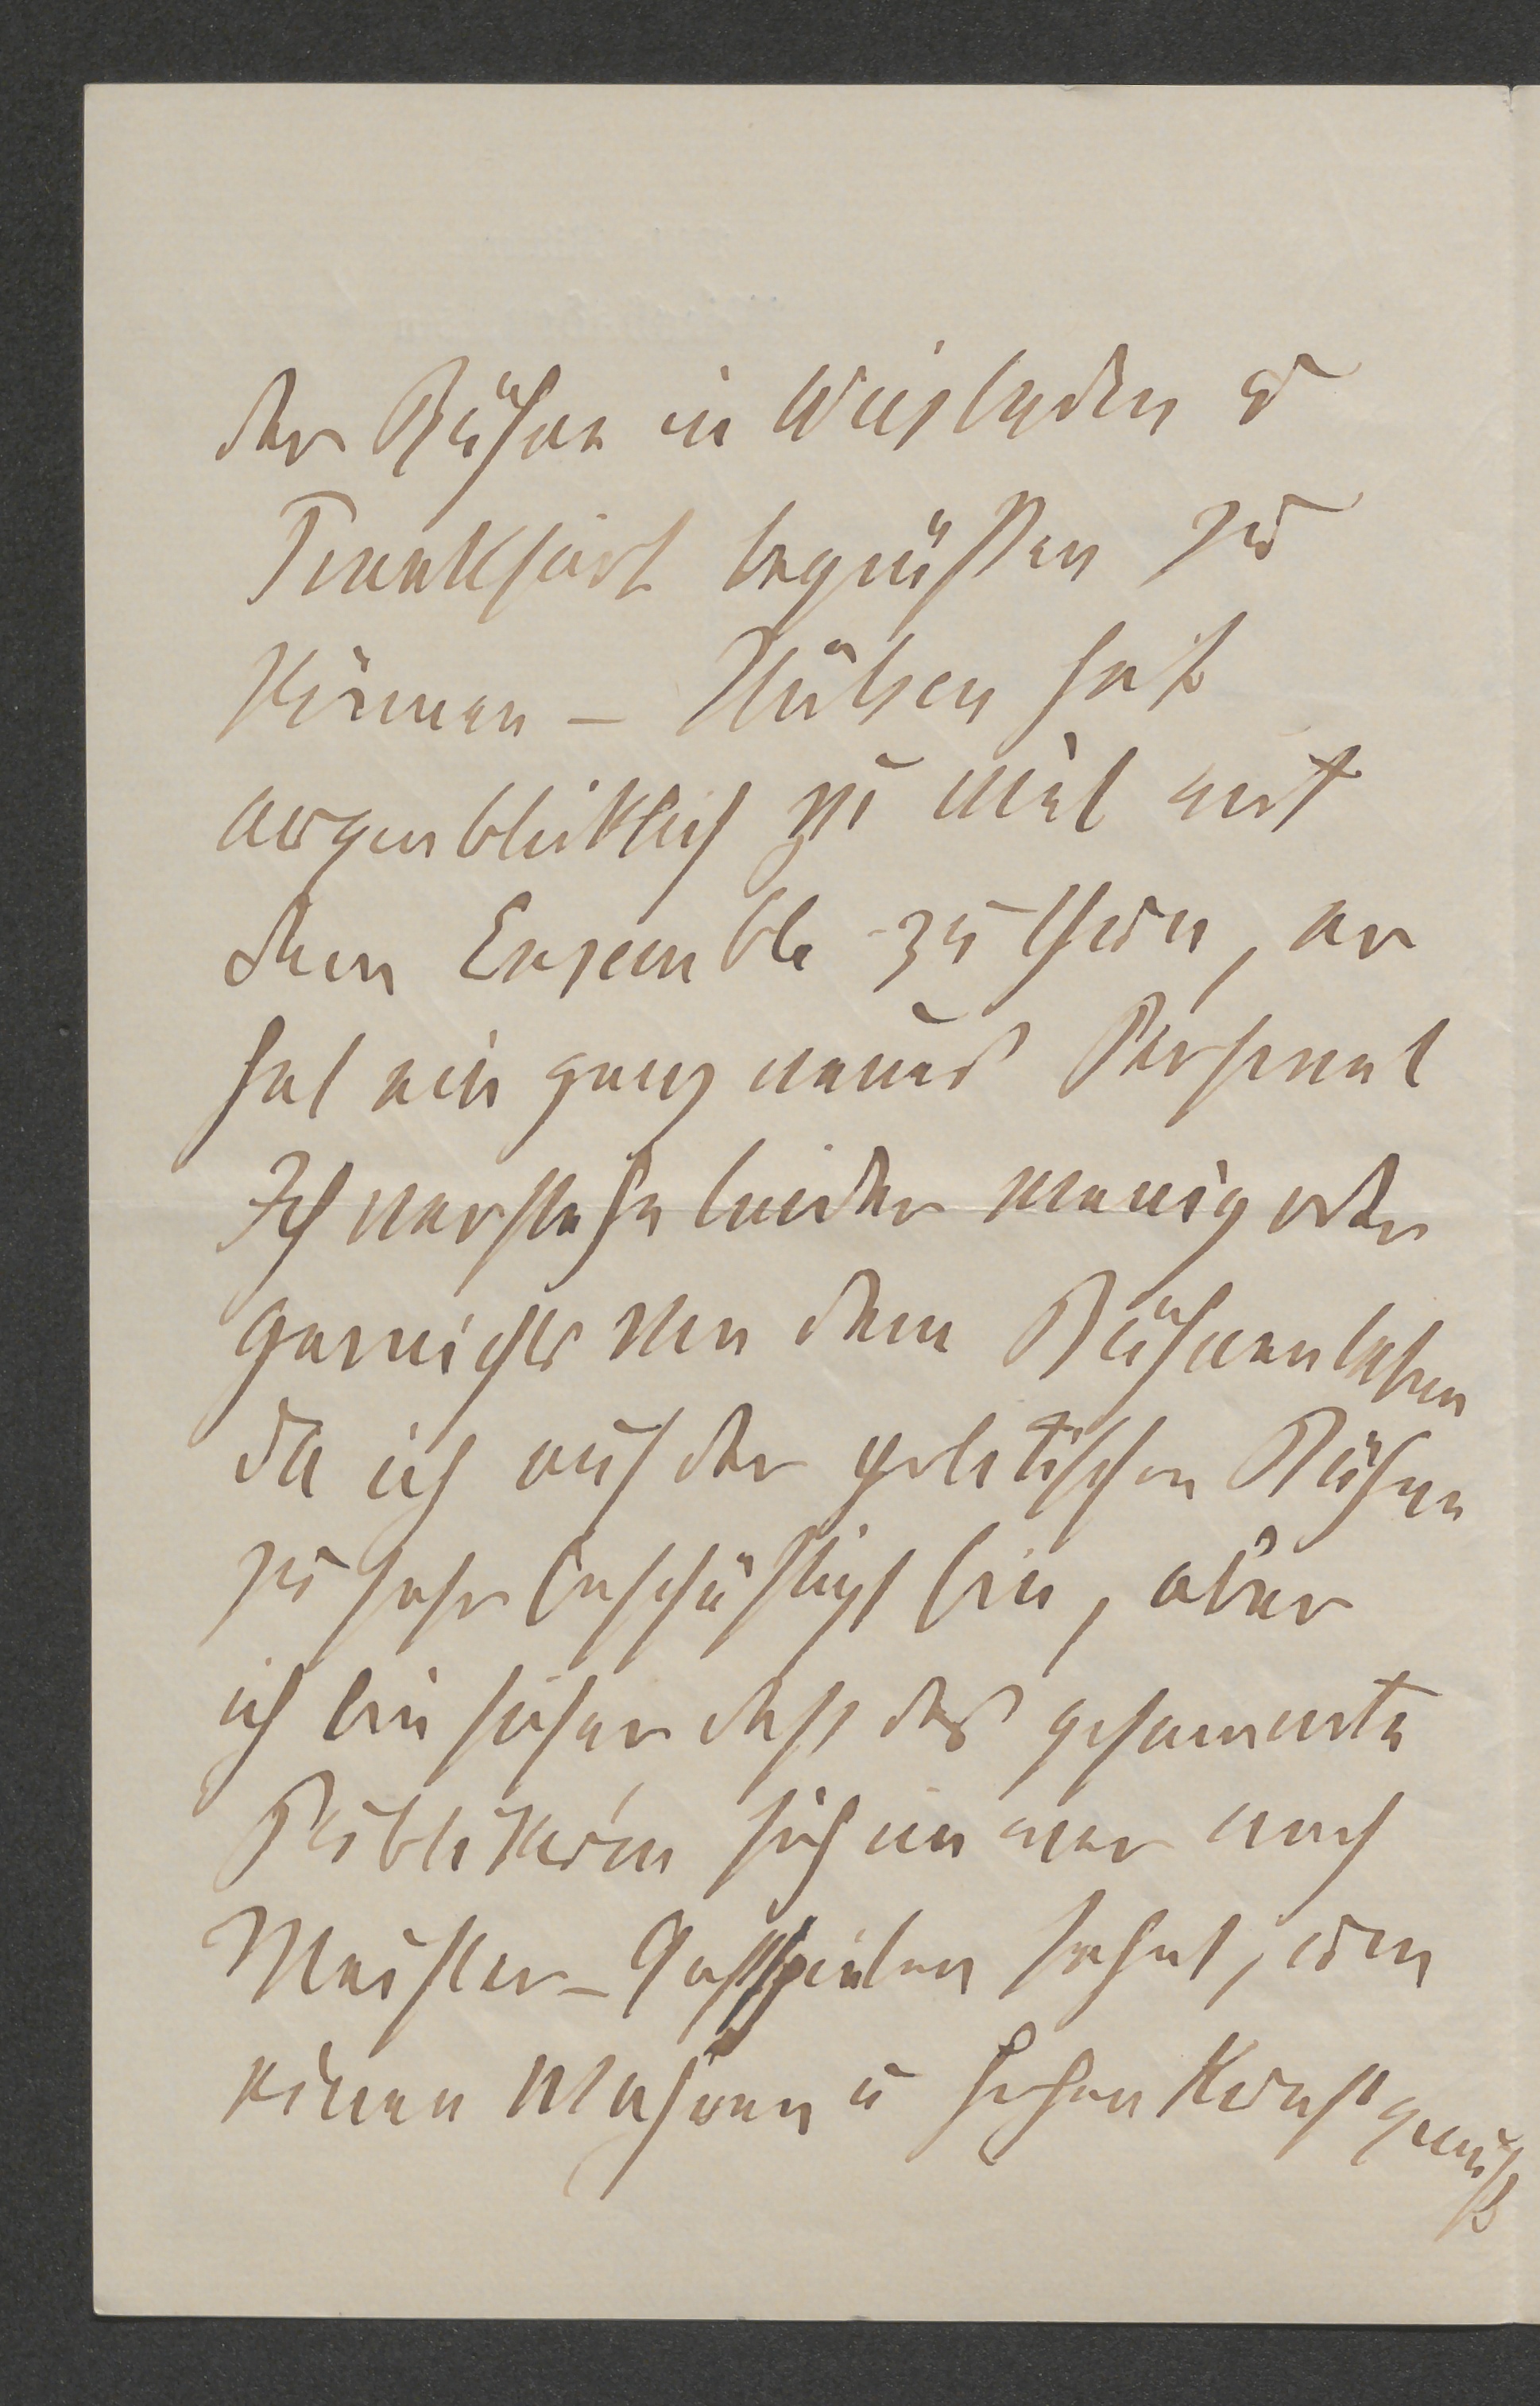 der Bühne in Wiesbaden u
Frankfurt begrüßen zu
können – Hülsen hat
augenbliklich zu viel mit
dem Ensemble zu thun, er
hat ein ganz neues Personal
Ich verstehe leider wenig oder
garnichts von dem Bühnenleben
da ich auf der politischen Bühne
zu sehr beschäftigt bin, aber
ich bin sicher daß das gesammte
Publikum sich immer nach
Meister-Gastspielen sehnt, um
einen wahren u hohen Kunstgenuß